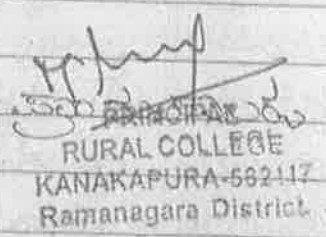 ಪ್ರಾಂಶುಪಾಲರು
PRINCIPAL
RURAL COLLEGE
KANAKAPURA-562117
Ramanagara District